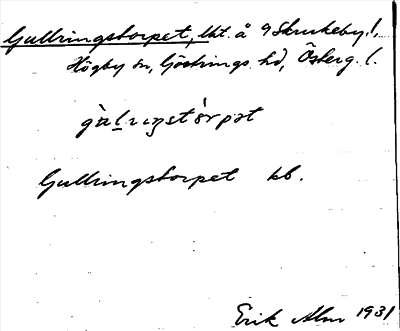 Gullringstorpet, lht. å 9 Skrukeby,
Högby sn, Göstrings hd, Österg. l.
Gullringstorpet kb.
Erik Alm 1931